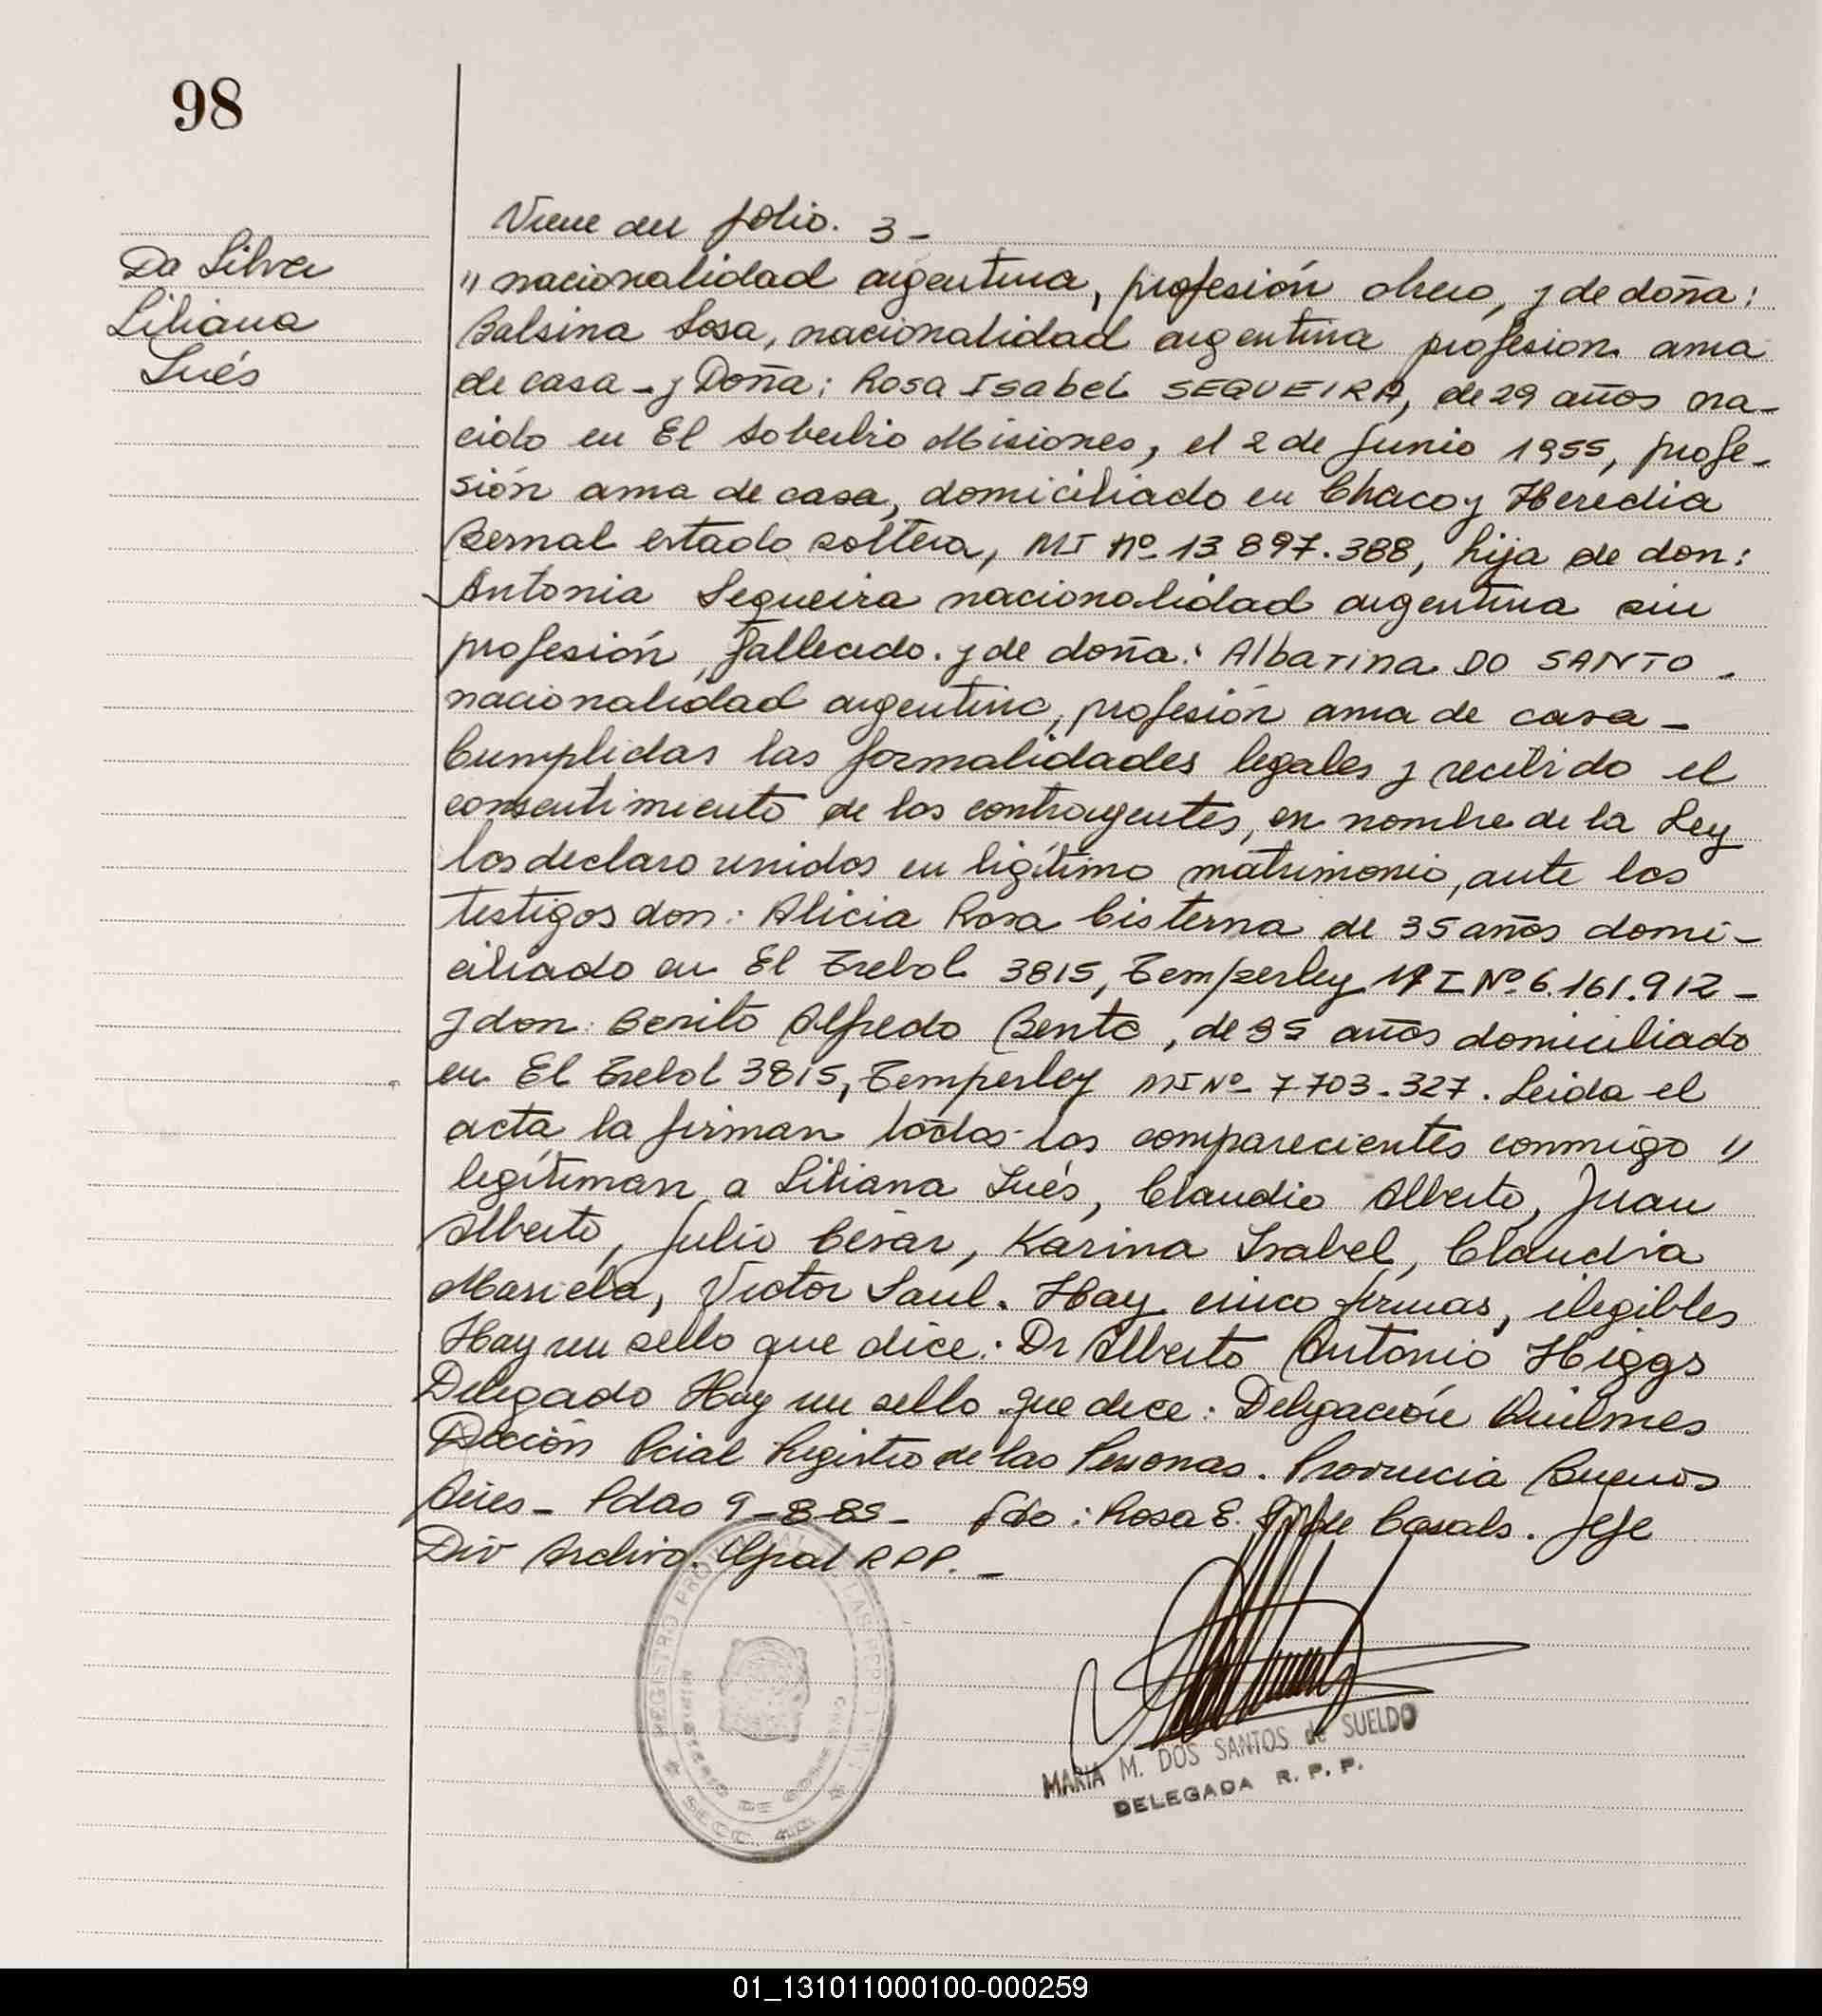 98
Da Silva
Liliana
Inés
Viene del folio. 3 -
" nacionalidad argentina, profesión obrero, y de doña:
Balsina Sosa, nacionalidad argentina profesion ama
de casa - y Doña: Rosa ISabel SEQUEIRA, de 29 años na-
cido en El Soberbio Misiones, el 2 de Junio 1955, profe-
sión ama de casa, domiciliado en Chaco y Heredia
Bernal estado soltera, MI Nº 13 897.388, hija de don:
Antonia Sequeira nacionalidad argentina sin
profesión, fallecido. y de doña: Albarina DO SANTO -
nacionalidad argentina, profesión ama de casa -
Cumplidas las formalidades legales y recibido el
consentimiento de los contrayentes, en nombre de la Ley
los declaro unidos en ligítimo matrimonio, ante los
testigos don: Alicia Rosa Cisterna de 35 años domi-
ciliado en El Trebol 3815, Temperley MI Nº 6.161.912 -
y don: Benito Alfredo Bento, de 35 años domiciliado
en El Trebol 3815, Temperley MI Nº 7703.327. Leida el
acta la firman todos los comparecientes conmigo "
legítiman a Liliana Inés, Claudio Alberto, Juan
Alberto, Julio César, Karina Isabel, Claudia
Mariela, Victor Saul. Hay cinco firmas, ilegibles
Hay un sello que dice: Dr Alberto Antonio Higgs
Delegado Hay un sello que dice: Delegación Quilmes
Dección Pcial Registro de las Personas. Provincia Buenos
Aires - Pdas 9-8-89 - fdo: Rosa E. de Casals. Jefe
Div Archivo Gral R.P.P. -
REGISTRO PROVINCIAL LAS PERSONAS
MINISTERIO DE GOBIERNO
SECC. 4ª
MARIA M. DOS SANTOS de SUELDO
DELEGADA R. P. P.
01_131011000100-000259